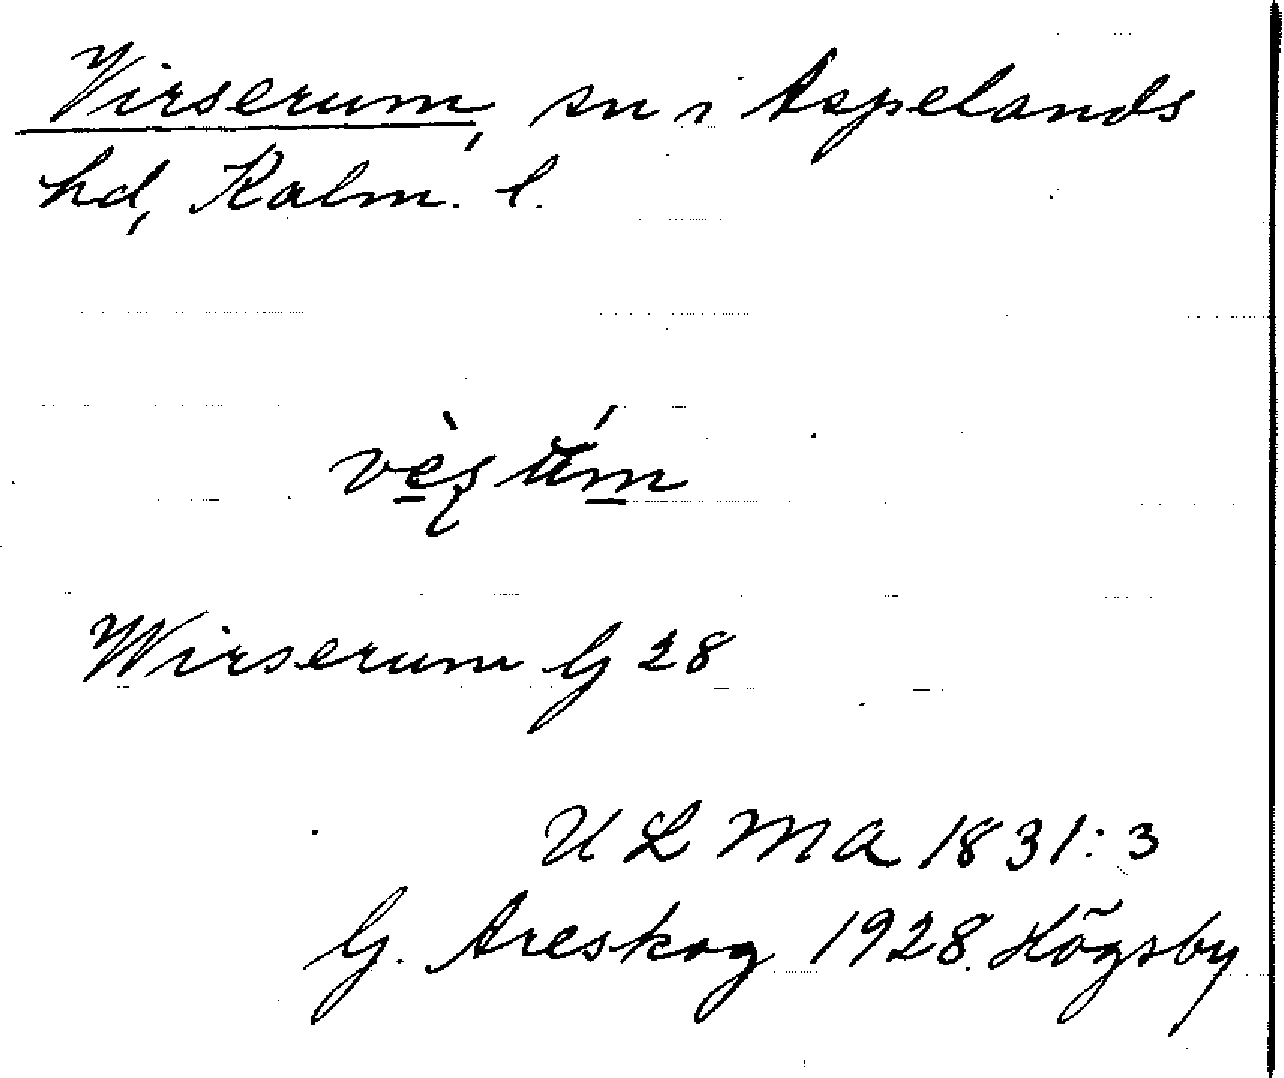 Virserum, sn i Aspelands
hd, Kalm. l.
Wirserum G 28
ULMA 1831:3
G. Areskog 1928. Högsby